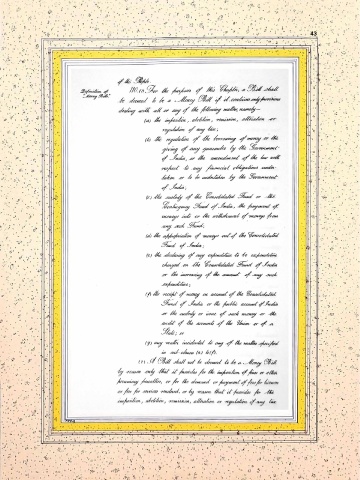 43
of the People.
Definition of
"Money Bill".
110. (1) For the purposes of this Chapter, a Bill shall
be deemed to be a Money Bill if it contains only provisions
dealing with all or any of the following matters, namely—
(a) the imposition, abolition, remission, alteration or
regulation of any tax;
(b) the regulation of the borrowing of money or the
giving of any guarantee by the Government
of India, or the amendment of the law with
respect to any financial obligations under-
taken or to be undertaken by the Government
of India;
(c) the custody of the Consolidated Fund or the
Contingency Fund of India, the payment of
moneys into or the withdrawal of moneys from
any such Fund;
(d) the appropriation of moneys out of the Consolidated
Fund of India;
(e) the declaring of any expenditure to be expenditure
charged on the Consolidated Fund of India
or the increasing of the amount of any such
expenditure;
(f) the receipt of money on account of the Consolidated
Fund of India or the public account of India
or the custody or issue of such money or the
audit of the accounts of the Union or of a
State; or
(g) any matter incidental to any of the matters specified
in sub-clauses (a) to (f).
(2) A Bill shall not be deemed to be a Money Bill
by reason only that it provides for the imposition of fines or other
pecuniary penalties, or for the demand or payment of fees for licences
or fees for services rendered, or by reason that it provides for the
imposition, abolition, remission, alteration or regulation of any tax